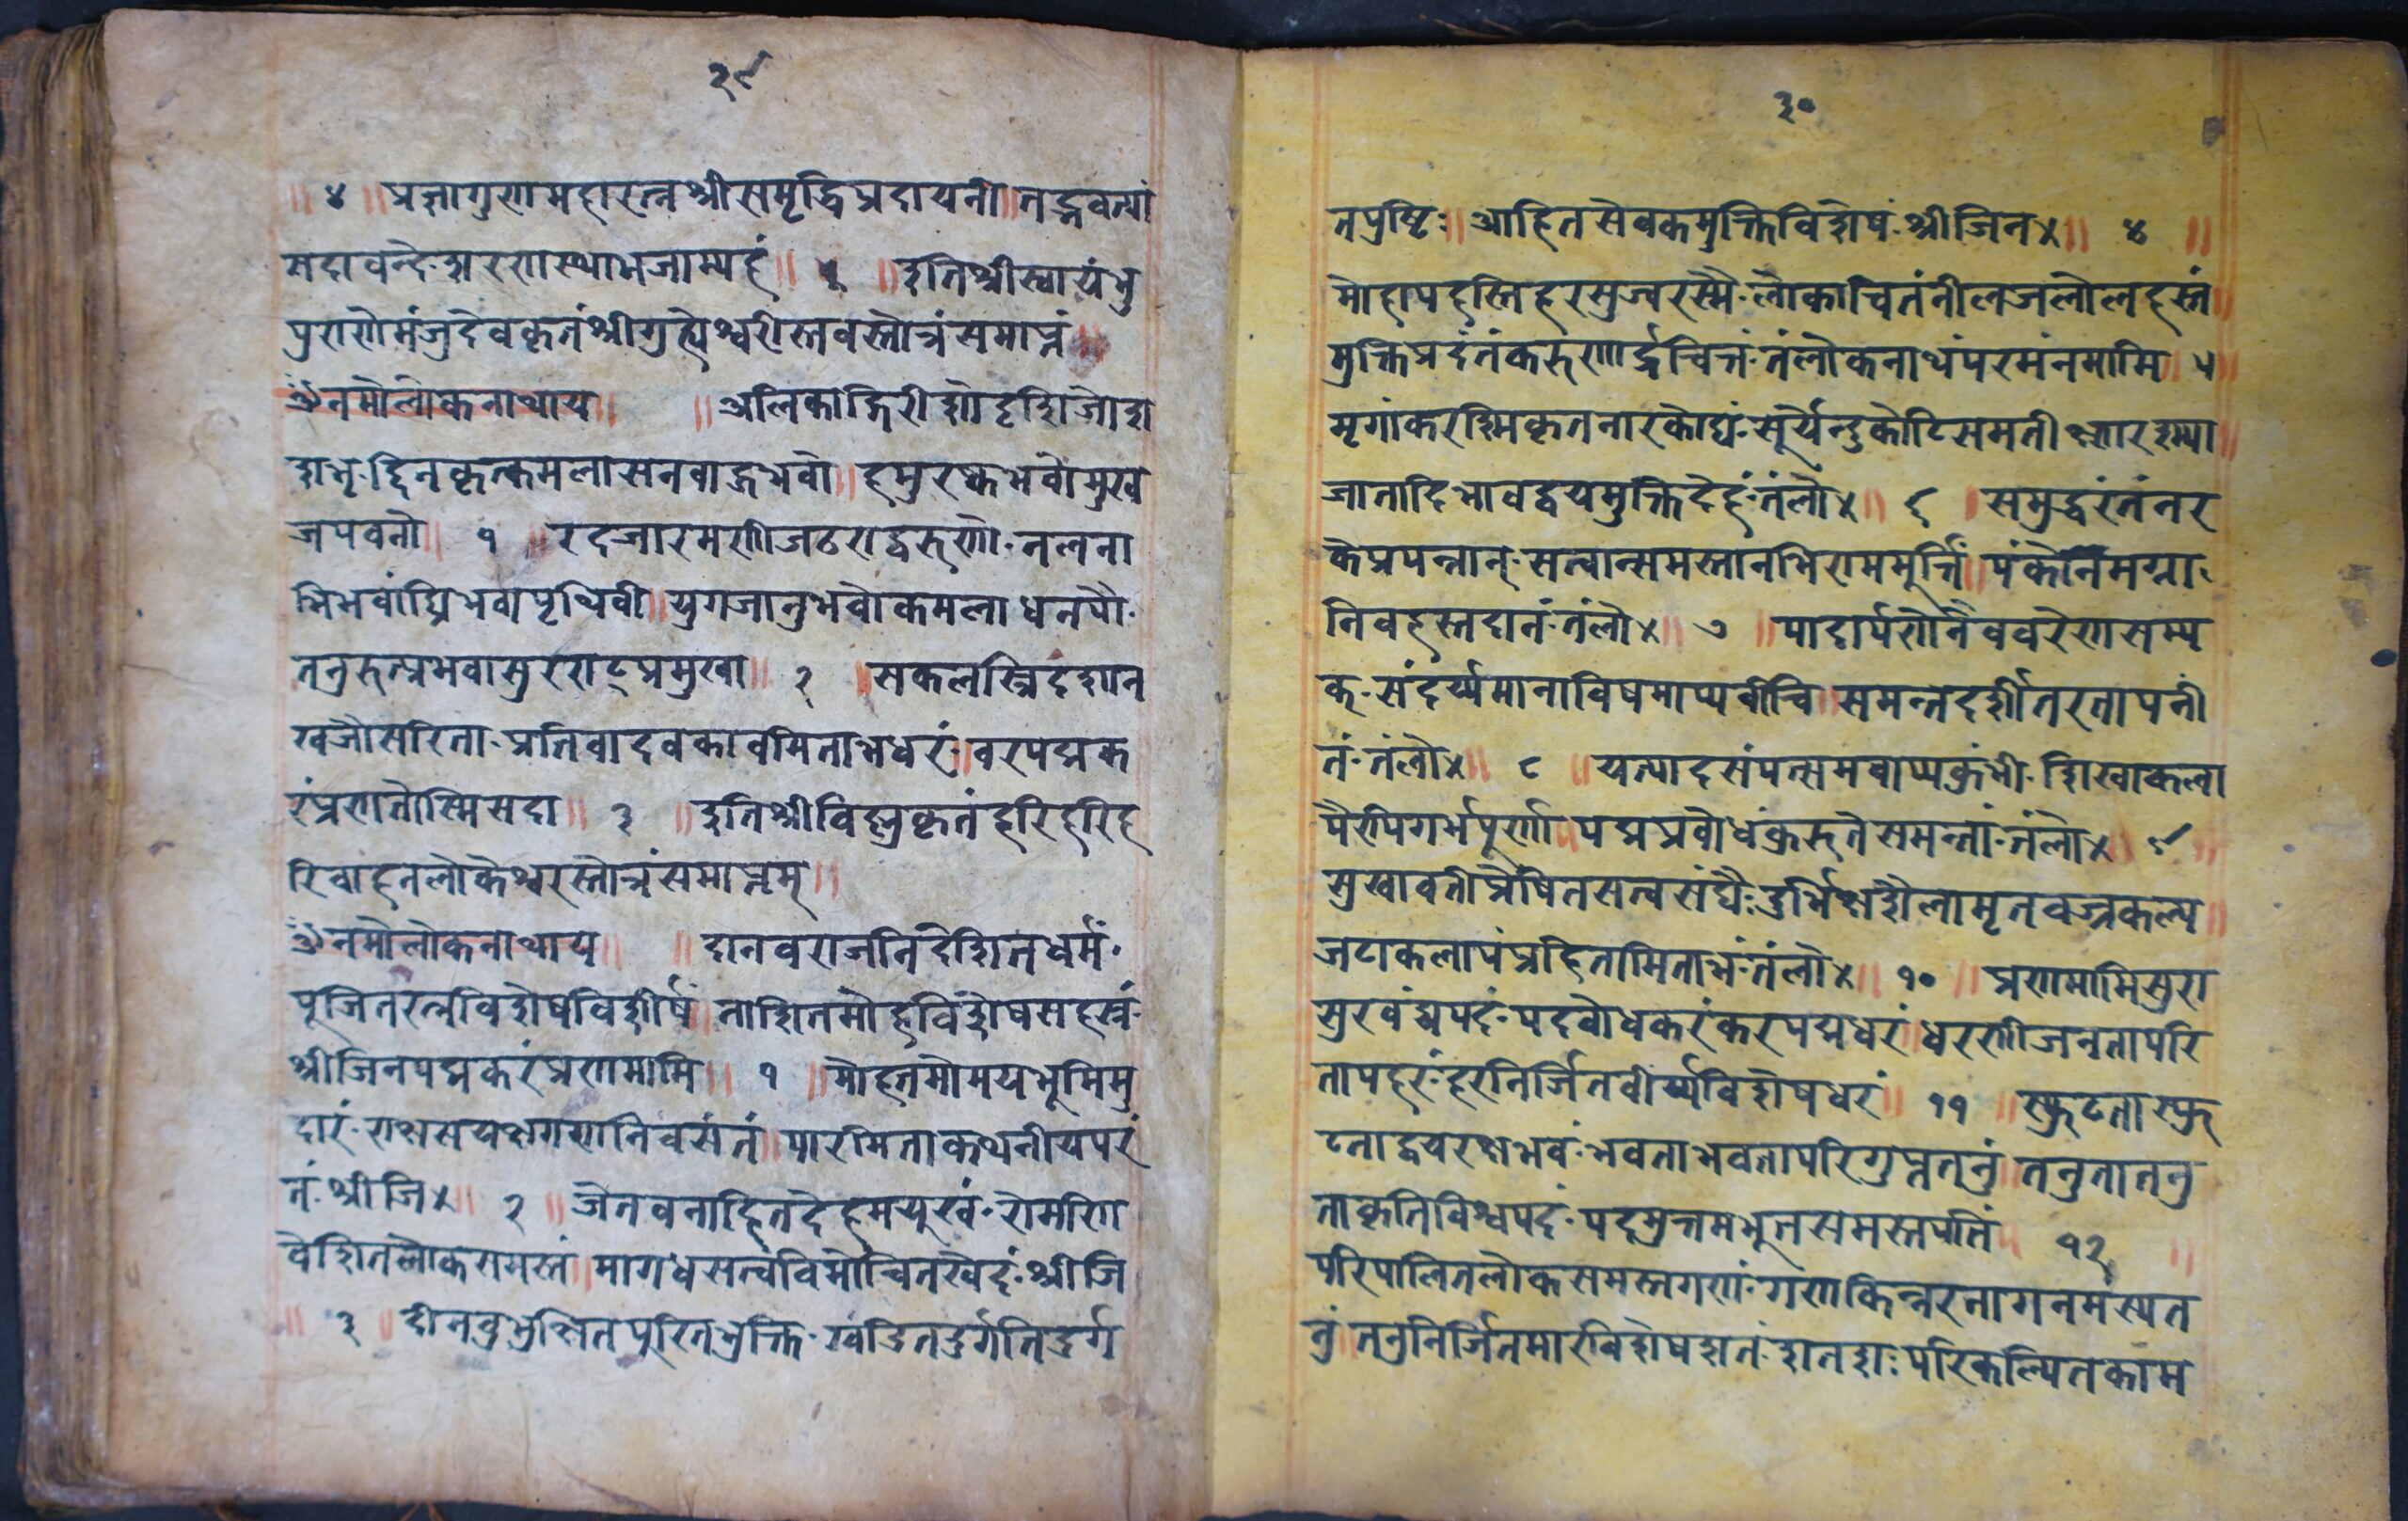 २९
॥ ४ ॥ प्रज्ञागुणमहारत्नश्रीसमृद्धिप्रदायनी॥तद्भवत्यां
सदावन्दे॰शरणास्थाभजाम्यहं॥ ५ ॥इतिश्रीस्वायंभु
पुराणेमंजुदेवकृतंश्रीगुह्येश्वरीस्तवस्तोत्रंसमाप्तं॥
ॐनमोलोकनाथाय॥ ॥अलिकाङ्गिरीशोदृशिजोश
शभृ॰द्दिनकृत्कमलासनवाद्गभवो॥हमुरष्कभवोमुख
जपवनो॥ १ ॥रदजारमणीजठराद्वरुणो॰नलना
भिभवांघ्रिभवापृथिवी॥युगजानुभवोकमलाधनपो॰
तनुरुत्प्रभवासुरराट्प्रमुखा॥ २ ॥सकलस्त्रिदशान
खजौसरिता॰प्रतिवादवकावमिताभधरं॰॥वरपद्मक
रंप्रणतोस्मिसदा॥ ३ ॥इतिश्रीविष्णुकृतंहरिहरिह
रिवाहनलोकेश्वरस्तोत्रंसमाप्तम्॥
ॐनमोलोकनाथाय॥ ॥दानवराजनिदेशितधर्मं॰
पूजितरत्नविशेषविशीर्षं॥नाशितमोहविंशेषसहस्रं॰
श्रीजिनपद्मकरंप्रणमामि॥ १ ॥मोहतमोमयभूमिमु
दारं॰राक्षसयक्षगणनिवसंतं॥पारमिताकथनीयपरं
तं॰श्रीजि४॥ २ ॥जेतवनाहितदेहमयुखं॰रोमणि
वेशितलोकसमस्तं॥मागधसत्वविमोचितखेदं॰श्रीजि
॥ ३ ॥दीनबुभुक्षितपुरितभुक्ति॰खंडितदुर्गतिदुर्ग
३०
तप्रुष्टि॰॥आहितसेवकमुक्तिविशेषं॰श्रीजिन४॥ ४ ॥
मोहापहस्तिहरमुज्वरस्मै॰लोकार्चितंनीलजलोलहस्तं॥
मुक्तिप्रदंतंकरुणार्द्रचित्तं॰तंलोकनाथंपरमंनमामि॥५॥
मृगांकरश्मिकृतनारकोघं॰सूर्येन्दुकोटिसमतीक्ष्णरश्म्या॥
जातादिभावद्वयमुक्तिदेहं॰तंलो४॥ ६ ॥समुद्धरंतंनर
केप्रपन्नान्॰सत्वान्समस्तानभिराममुर्त्तिं॥पंकेनिमग्ना
निवहस्तदानं॰तंलो४॥ ७ ॥पादार्पणेनैववरेणसम्य
क्॰संदर्य्यमानाविषमाप्यवीचि॥समन्तदर्शीतरतापनी
तं॰तंलो४॥ ८ ॥यत्पादसंपत्समवाप्यकुंभी॰शिखाकला
पैरुपिगर्भपूर्णा॥पद्मप्रबोधंकुरुतेसमन्तां॰तंलो४॥ ९॥
सुखावतीप्रेषितसत्वसंघै॰दुर्भिक्षशैलामृतवज्रकल्प॥
जटाकलापंप्रहितामिताभं॰तंलो४॥ १० ॥प्रणमामिसुरा
सुरवंद्यपदं॰पदबोधकरंकरपद्मधरं॥धरणीजनतापरि
तापहरं॰हरनिर्जितवीर्य्यविशेषधरं॥ ११ ॥स्फुटतास्फु
टताद्वयरक्षभवं॰भवताभवतापरिगुप्ततनुं॥तनुतातनु
ताकृतिविश्वपदं॰पदमुत्तमभूतसमस्तपतिं॥ १२ ॥
परिपालितलोकसमस्तगणं॰गणकिन्नरनागनमस्यत
नुं॥तनुनिर्जितमारविशेषशतं॰शतशः॰परिकल्पितकाम